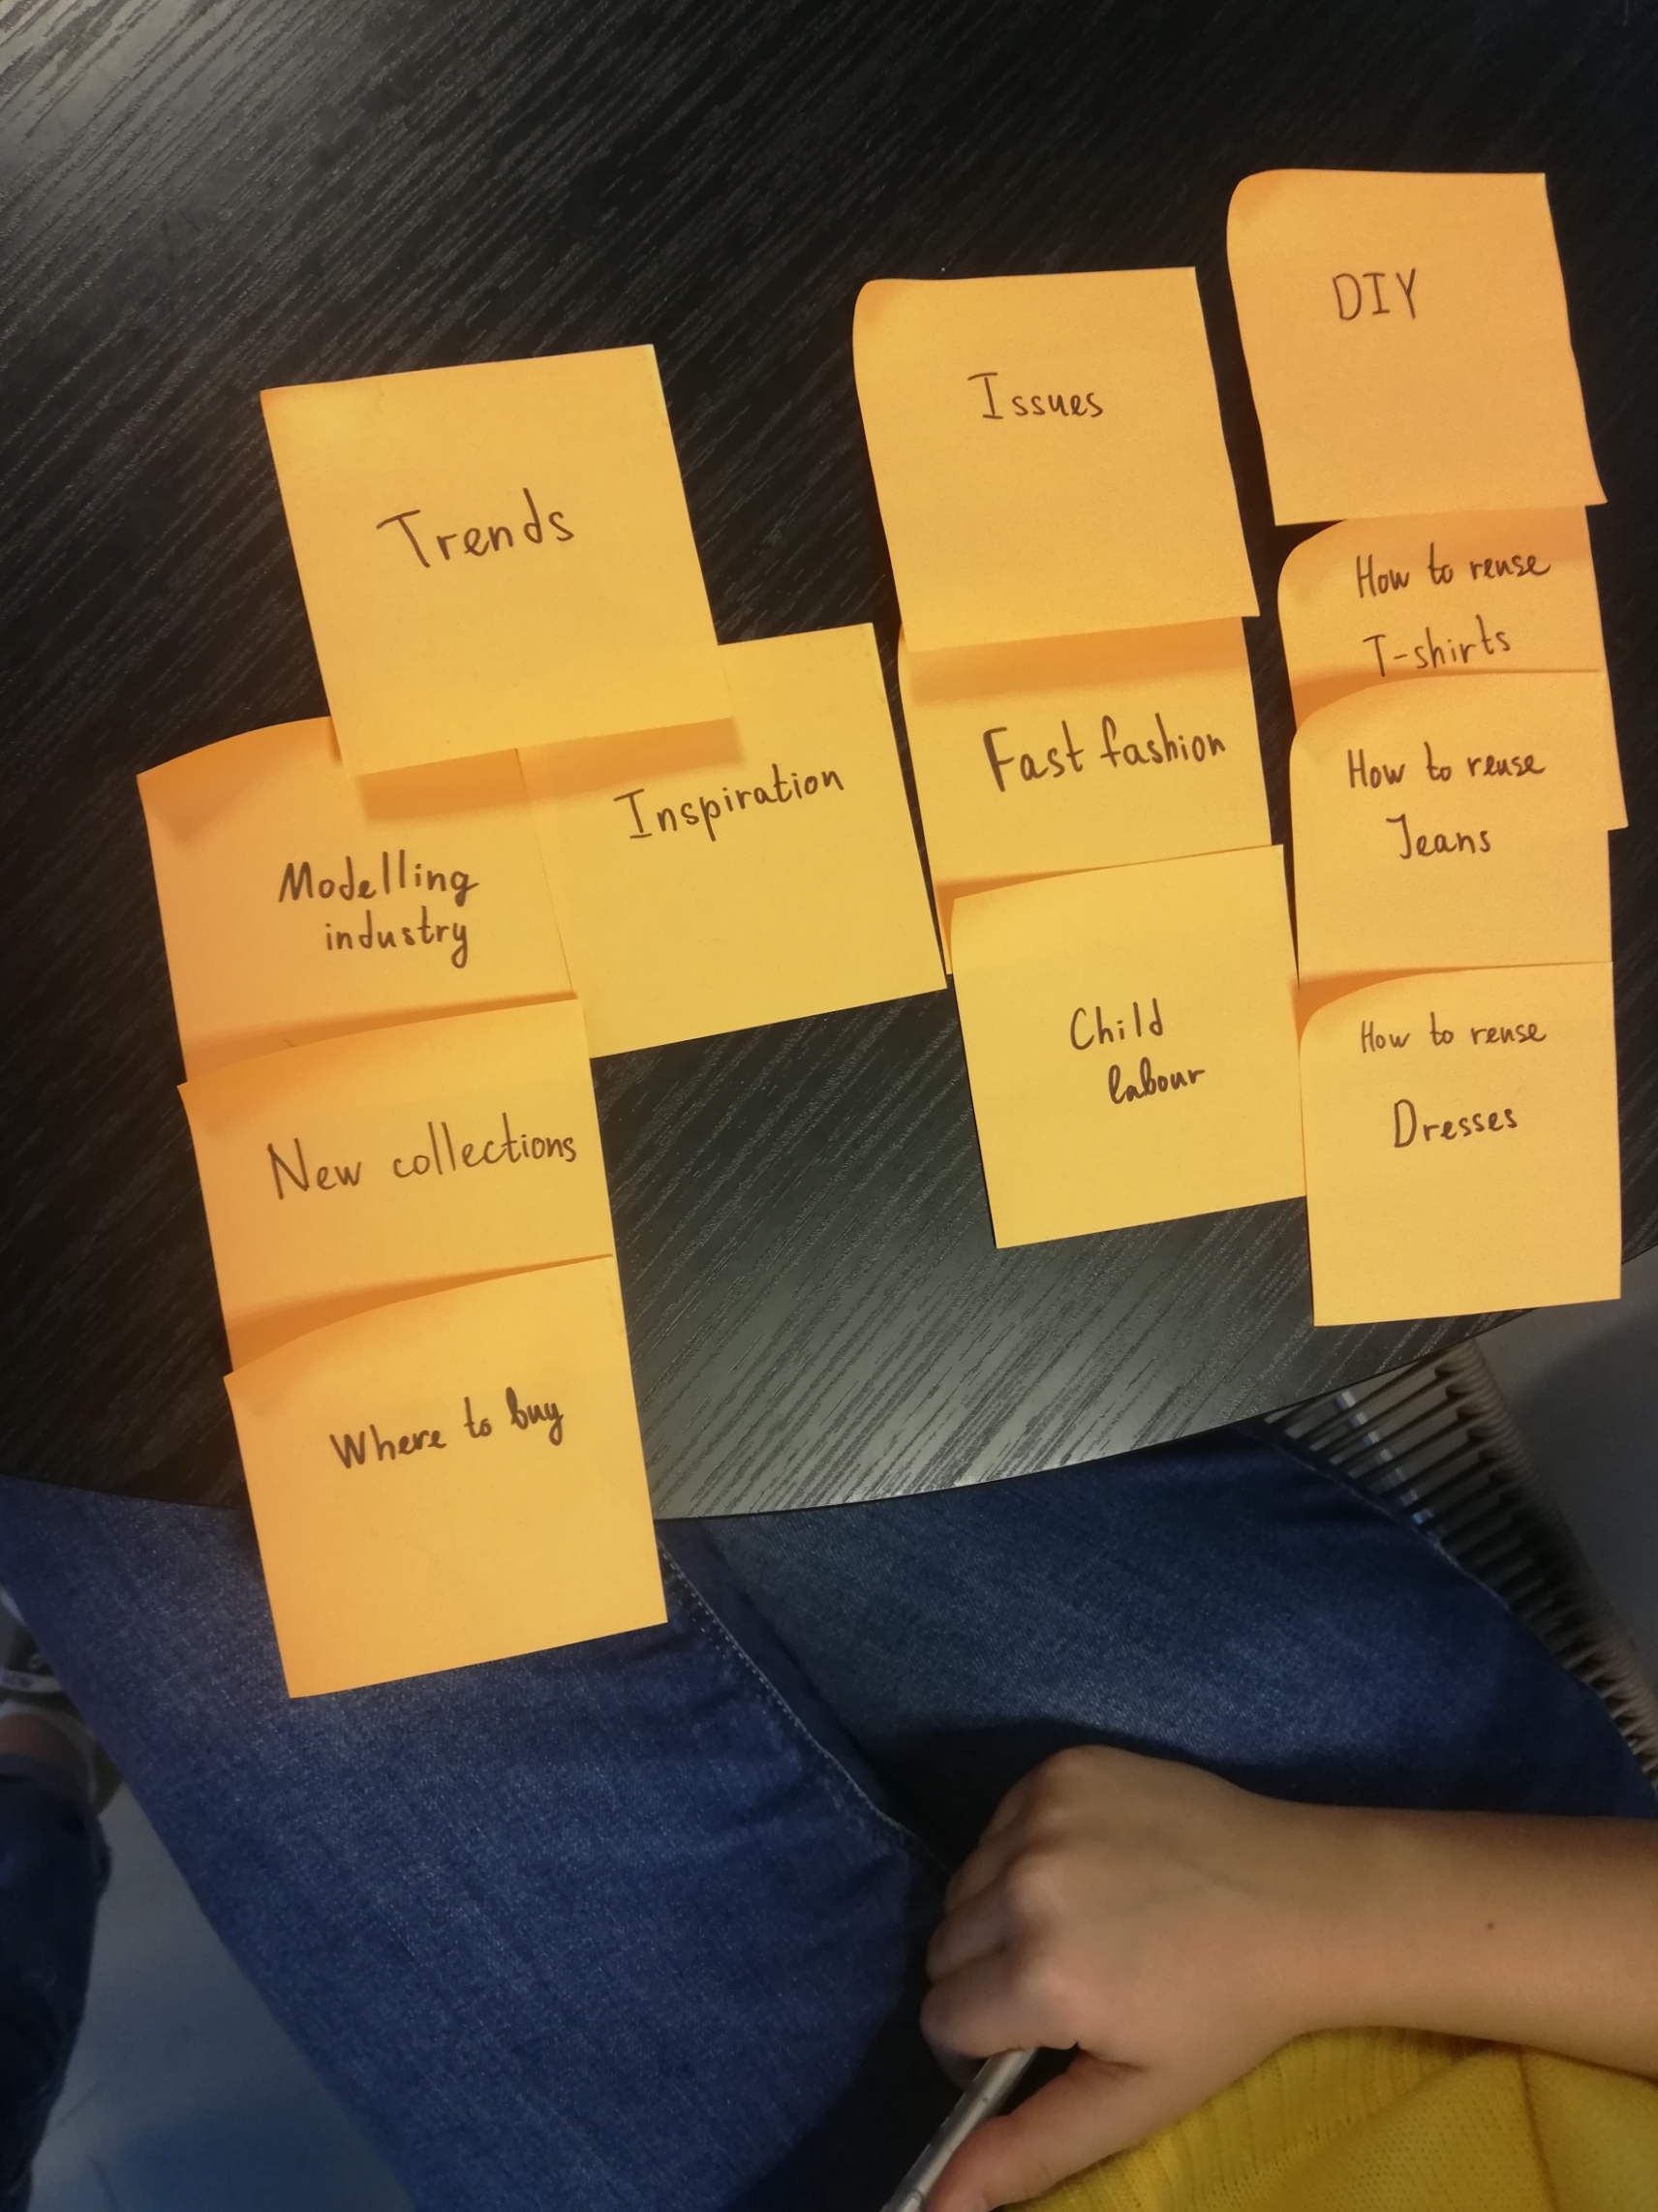 Trends
Modelling
industry
Inspiration
New collections
Where to buy
Issues
Fast fashion
Child
labour
DIY
How to reuse
T-shirts
How to reuse
Jeans
How to reuse
Dresses